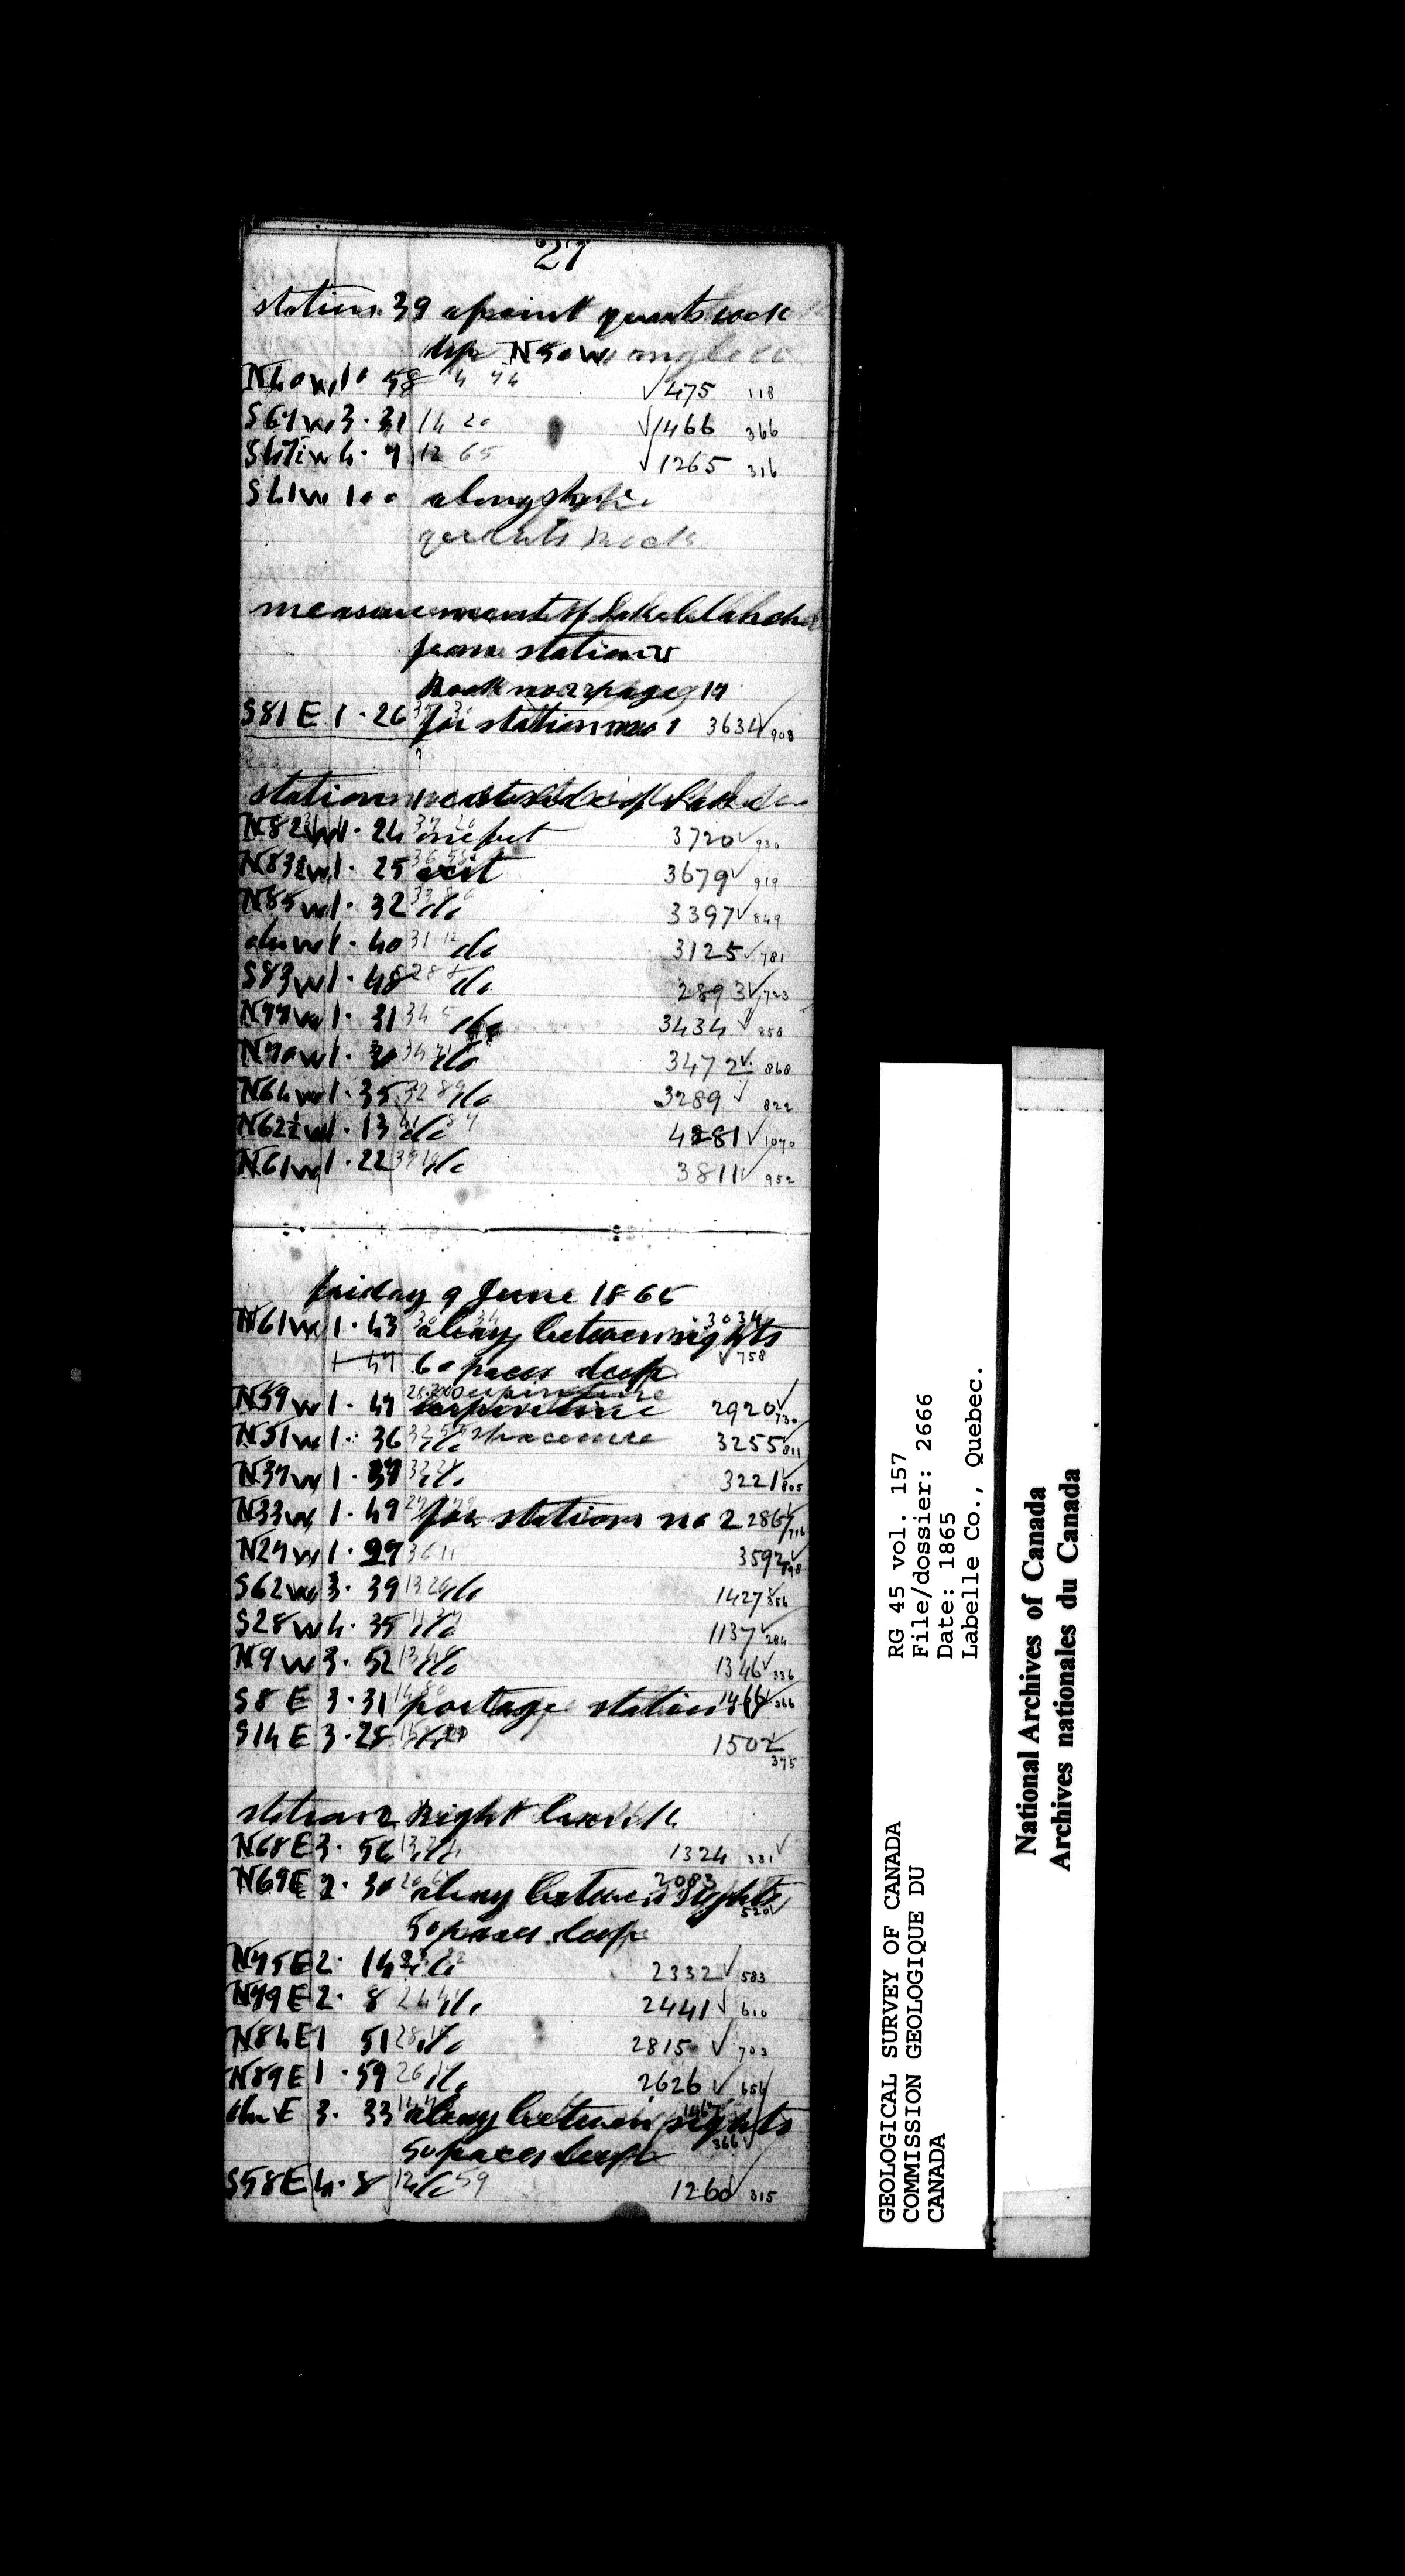 27
station 39 apoint quarts rock
dip N50W angle 60
N40W 10 58 4 74 √475 118
S67W 3·31 14 20 √1466 366
S47½W 4·7 12 65 √1265 316
S41W 100 along shore
quarts rock
measurement of Lake
from station
Book no 2 page 17
S81E 1·26 for station no 1 3634√ 908
station 1 east side of Lake
N82W 1·24 37 20 one feet 3720√ 930
N83½W 1·25 36 55 3679√ 919
N85W 1·32 33 86 do 3397√ 849
due W 1·40 31 12 do 3125√ 781
S83W 1·48 28 do 2893√ 723
N77W 1·31 34 do 3434√ 858
N70W 1·30 34 71 do 3472√ 868
N64W 1·35 32 89 do 3289√ 822
N62½W 1·13 do 4281√ 1070
N61W 1·22 do 3811√ 952
friday 9 June 1865
N61W 1·43 30 34 along between sights 3034
1 47 60 paces deep √758
N59W 1·47 2920√ 730
N51W 1·36 32 55 do 3255√ 811
N37W 1·37 32 21 do 3221√ 805
N33W 1·49 for station no 2 2867√ 716
N27W 1·29 36 11 3592√ 898
S62W 3·39 13 26 do 1427√ 356
S28W 4·35 do 1137√ 284
N9W 3·52 13 48 do 1346√ 336
S8E 3·31 14 80 portage station 1466√ 366
S14E 3·28 do 1502√ 375
station 2 Right bank
N68E 3·56 13 24 do 1324 331√
N69E 2·30 along between sights 2083
50 paces deep 520√
N75E 2·14 do 2332√ 583
N79E 2·8 do 2441√ 610
N84E 1 51 28 do 2815√ 703
N89E 1·59 26 do 2626√ 656
due E 3·33 along between sights
50 paces deep 366√
S58E 4·8 12 do 59 1260√ 315
GEOLOGICAL SURVEY OF CANADA
COMMISSION GEOLOGIQUE DU
CANADA
RG 45 vol. 157
File/dossier: 2666
Date: 1865
Labelle Co., Quebec.
National Archives of Canada
Archives nationales du Canada